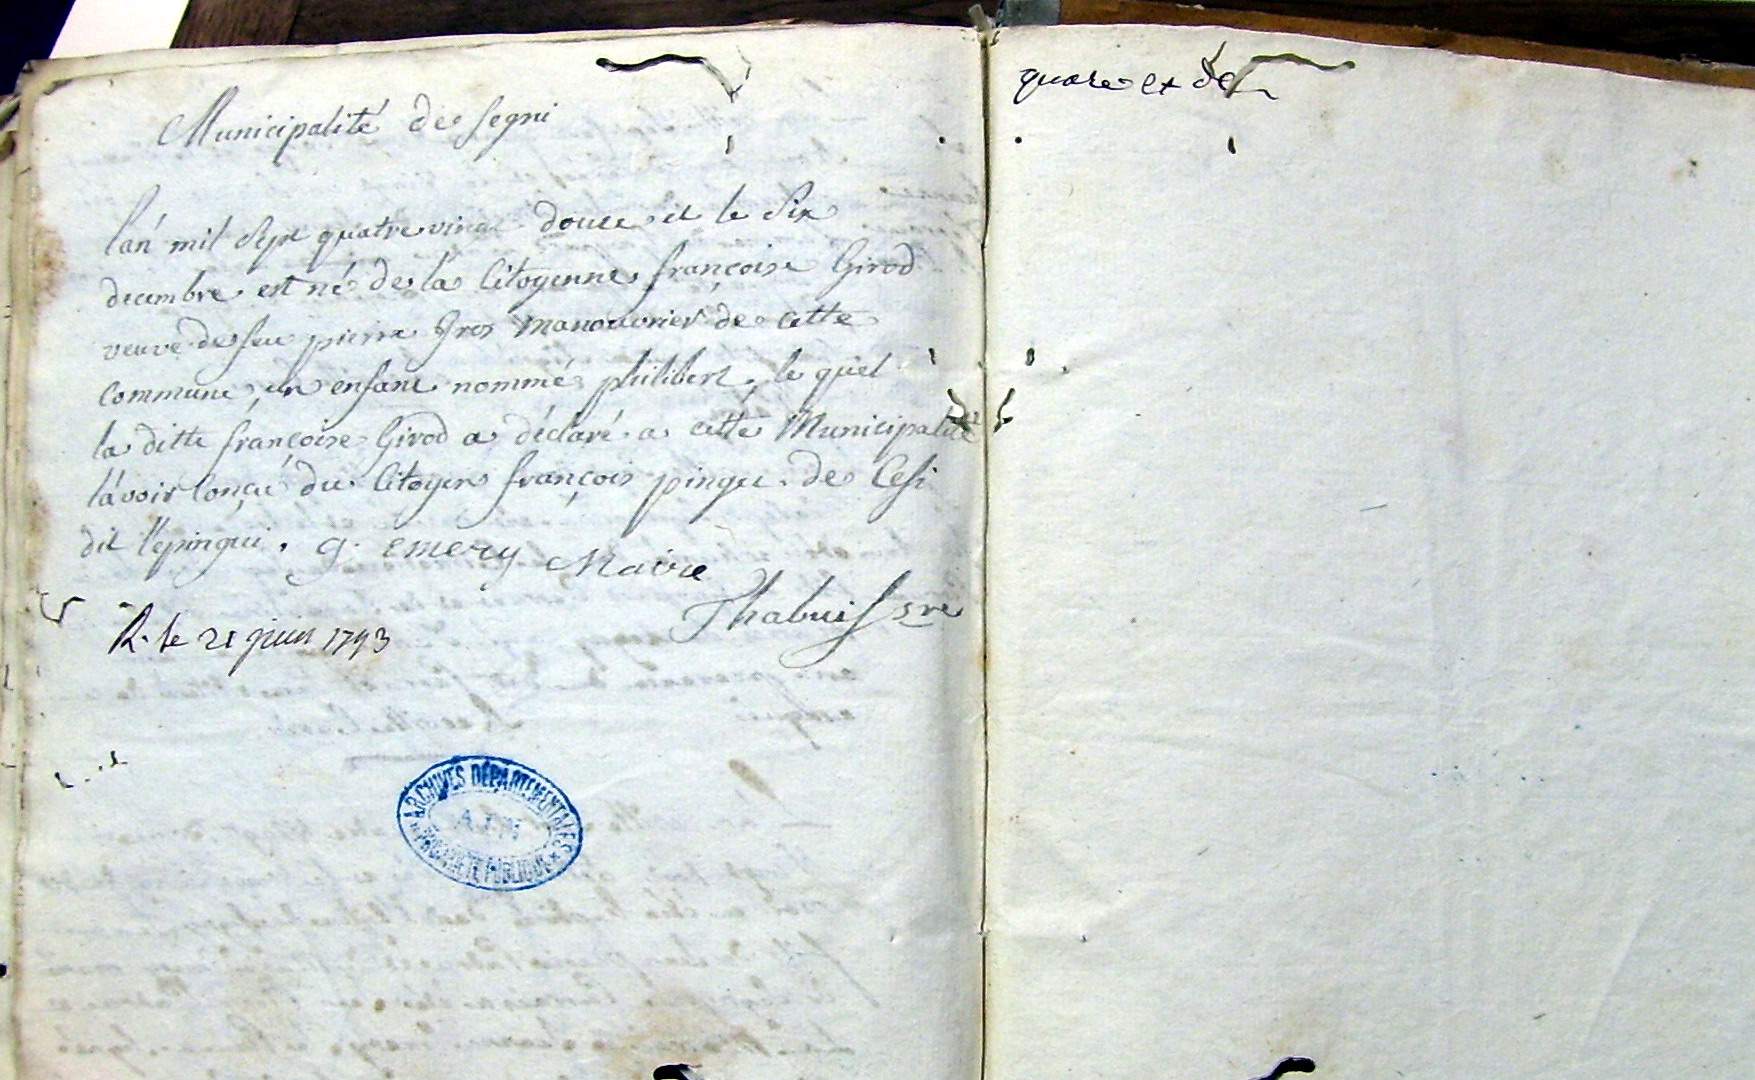 Municipalité de segni
l'an mil sept quatre vingt douze et le six
decembre est né de la Citoyenne françoise Girod
veuve de feu pierre Gros manouvrier de cette
commune, un enfant nommé philibert, le quel
la ditte françoise Girod a déclaré a cette Municipalité
l'avoir conçu du Citoyen françois pingu de Cesi
dit l'epingui. g. emery Maire
Thabuis Sre
R. le 21 juin 1793
ARCHIVES DÉPARTEMENTALES
AIN
PROPRIÉTÉ PUBLIQUE